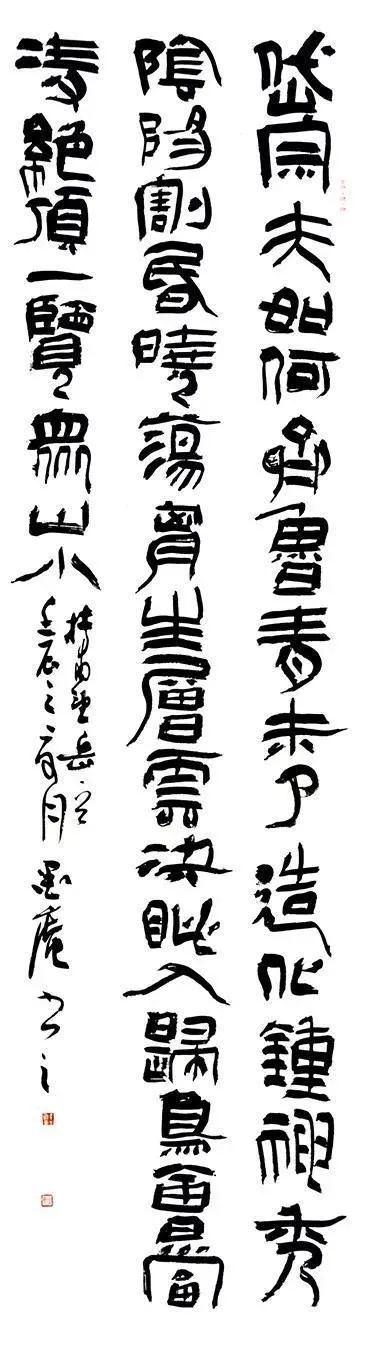 岱宗夫如何齊魯青未了造化鍾神秀
陰陽割昏曉蕩胷生層雲決眦入歸鳥會當
淩絕頂一覽眾山小
杜甫望岳
壬辰之月 墨庵書之